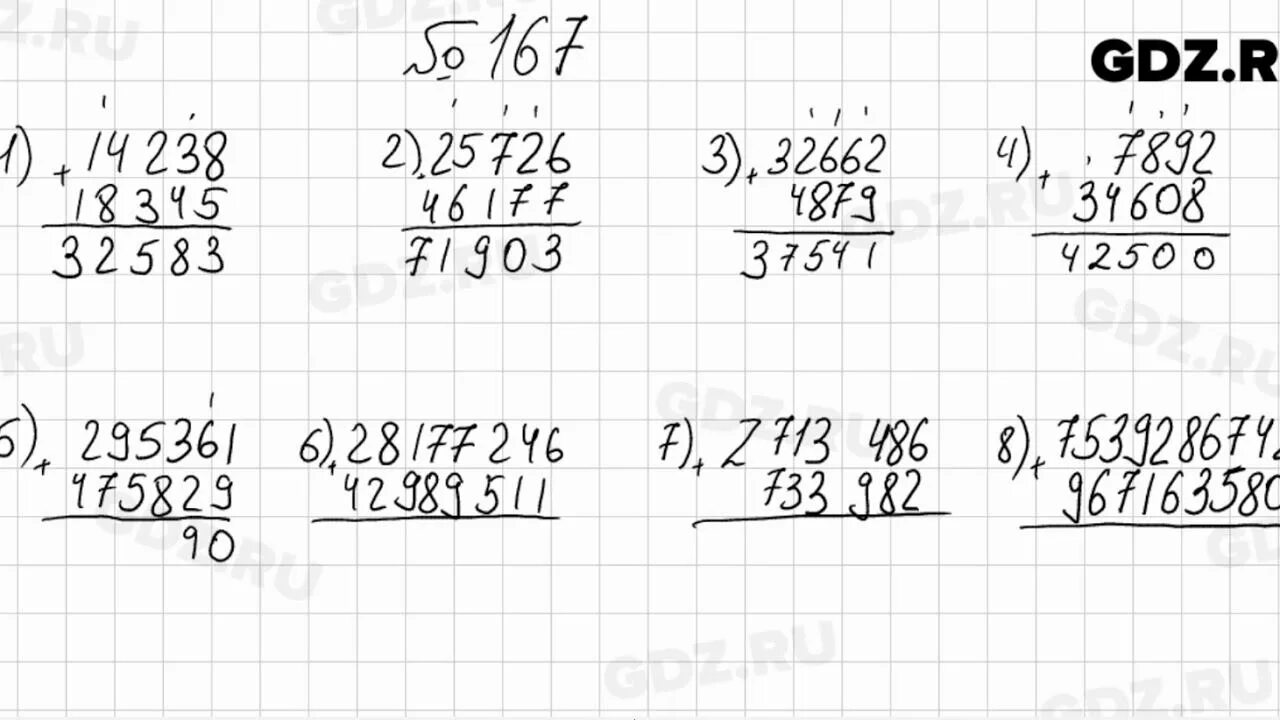 № 167
GDZ.R
1) + 14 238
18 345
32583
2) + 25 726
46177
71903
3) + 32662
4879
37541
4) + 7892
34608
42500
5) + 295361
475829
90
6) + 28177 246
42989 511
7) + 2 713 486
733 982
8) + 7539286742
967163580
GDZ.RU
GDZ.RU
GDZ.RU
GDZ.RU
GDZ.RU
GDZ.RU
GDZ.RU
GDZ.RU